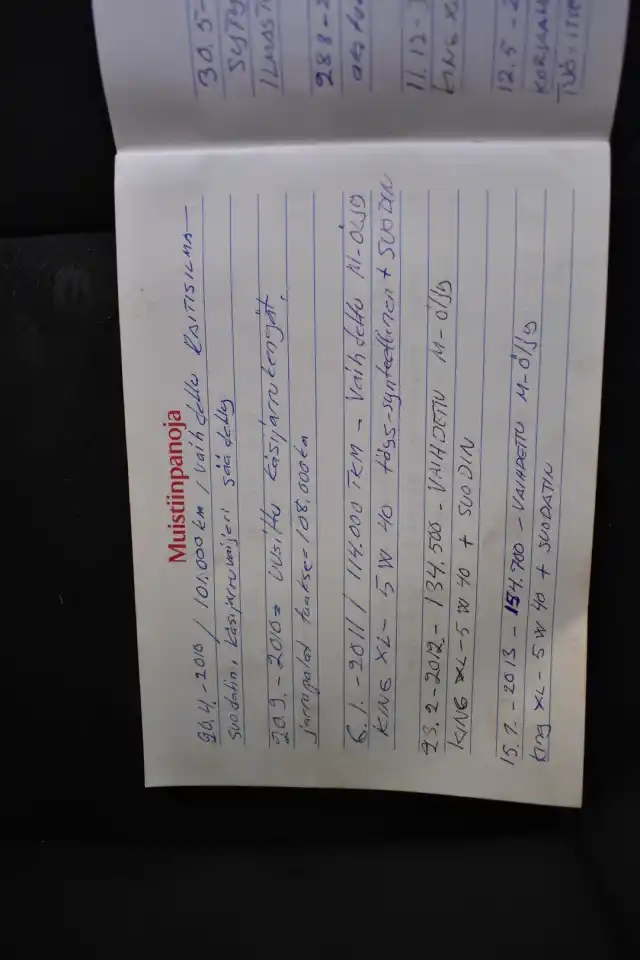 30.5-
SYTY
ILMAST
28.8-2
11.12-
KING XL
12.5-2
KORJAA
Muistiinpanoja
26.4,-2010 / 101.000 km / vaih dettu RAITISILMA-
suodatin, käsijarruvaijeri säädetty
20.9.-2010= uusittu käsijarrukengät,
jarrupalat taakse=108,000km
6.1.-2011/ 114.000 TKM - Vaihdettu M-ÖLJY
KING XL- 5 W 40 täys-synteettinen + SUODIN
23.2-2012.-134.500-VAIHDETTU M-ÖLJY
KING XL-5W40 + SUODIN
15.1.-2013-154.700-VAIHDETTU M-ÖLJY
King XL-5W40 + SUODATIN